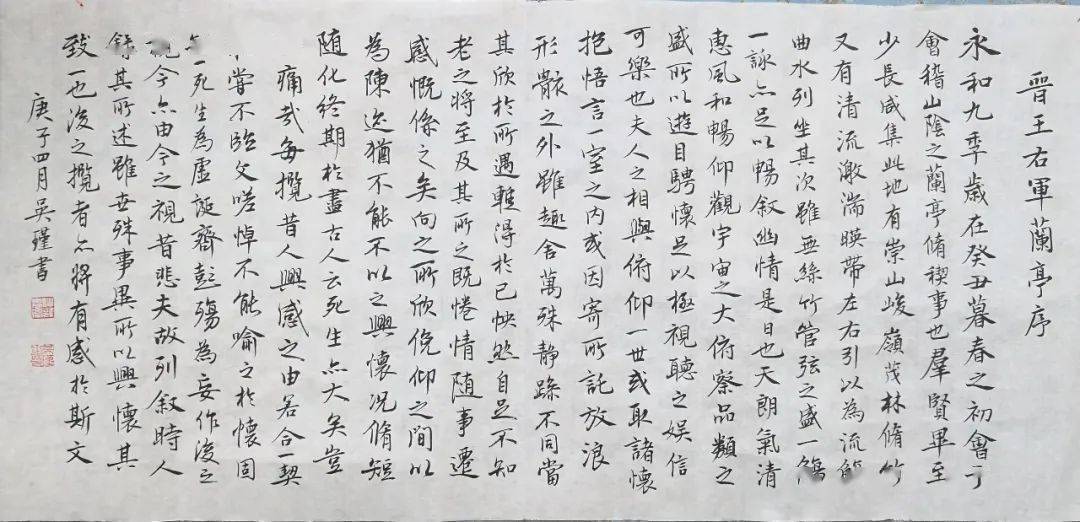 晉王右軍蘭亭序
永和九年歲在癸丑暮春之初會于
會稽山陰之蘭亭脩禊事也羣賢畢至
少長咸集此地有崇山峻嶺茂林脩竹
又有清流激湍暎帶左右引以為流觴
曲水列坐其次雖無絲竹管弦之盛一觴
一詠亦足以暢叙幽情是日也天朗氣清
惠風和暢仰觀宇宙之大俯察品類之
盛所以遊目騁懷足以極視聽之娛信
可樂也夫人之相與俯仰一世或取諸懷
抱悟言一室之内或因寄所託放浪
形骸之外雖趣舍萬殊静躁不同當
其欣於所遇暫得於己怏然自足不知
老之將至及其所之既惓情随事遷
感慨係之矣向之所欣俛仰之閒以
為陳迹猶不能不以之興懷况脩短
随化終期於盡古人云死生亦大矣豈
不痛哉每攬昔人興感之由若合一契
嘗不臨文嗟悼不能喻之於懷固
一死生為虛誕齊彭殤為妄作後之
視今亦由今之視昔悲夫故列叙時人
錄其所述雖世殊事異所以興懷其
致一也後之攬者亦將有感於斯文
庚子四月吴瑾書